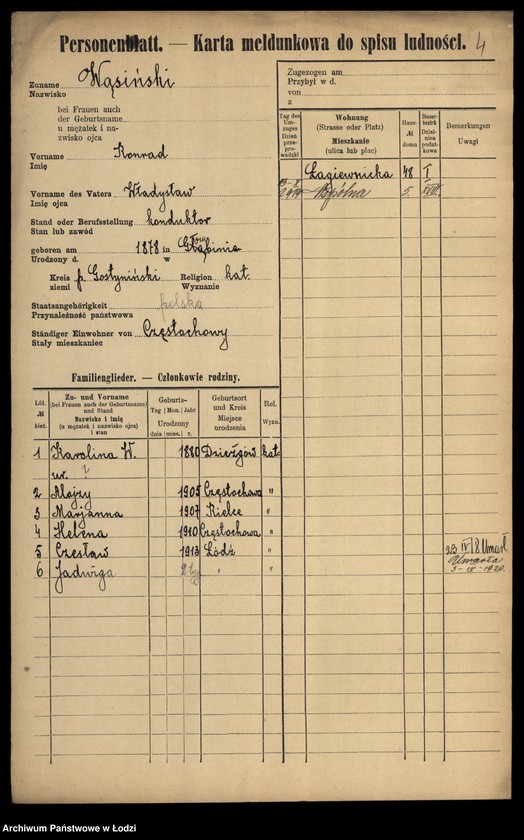 Personenblatt. — Karta meldunkowa do spisu ludności. 4
Zuname Wąsiński
Nazwisko
bei Frauen auch
der Geburtsname
u mężatek i na-
zwisko ojca
Vorname Konrad
Imię
Vorname des Vaters Władysław
Imię ojca
Stand oder Berufsstellung konduktor
Stan lub zawód
geboren am 1878 in
Urodzony d. w
Kreis p. Gostyniński Religion kat.
ziemi Wyznanie
Staatsangehörigkeit polska
Przynależność państwowa
Ständiger Einwohner von Częstochowy
Stały mieszkaniec
Zugezogen am
Przybył w d.
von
z
Tag des Um-zuges Dzień prze-prowadzki
Wohnung (Strasse oder Platz) Mieszkanie (ulica lub plac)
Haus-№ domu
Steuer-bezirk Dzielnica podatkowa
Bemerkungen Uwagi
Łagiewnicka 48 I
Wspólna 5
Familienglieder. — Członkowie rodziny.
Lfd. № bież.
Zu- und Vorname (bei Frauen auch der Geburtsname) und Stand Nazwisko i imię (u mężatek i nazwisko ojca) i stan
Geburts- Tag | Mon. | Jahr Urodzony dnia | mies. | r.
Geburtsort und Kreis Miejsce urodzenia
Rel. Wyzn.
1 Karolina W. 1880 Dzierżgów kat.
ur. ?
2 Alojzy 1905 Częstochowa "
3 Marjanna 1907 Kielce "
4 Helena 1910 Częstochowa "
5 Czesław 1913 Łódź " 23 IV 18 Umarł
6 Jadwiga " " Umarła
Archiwum Państwowe w Łodzi